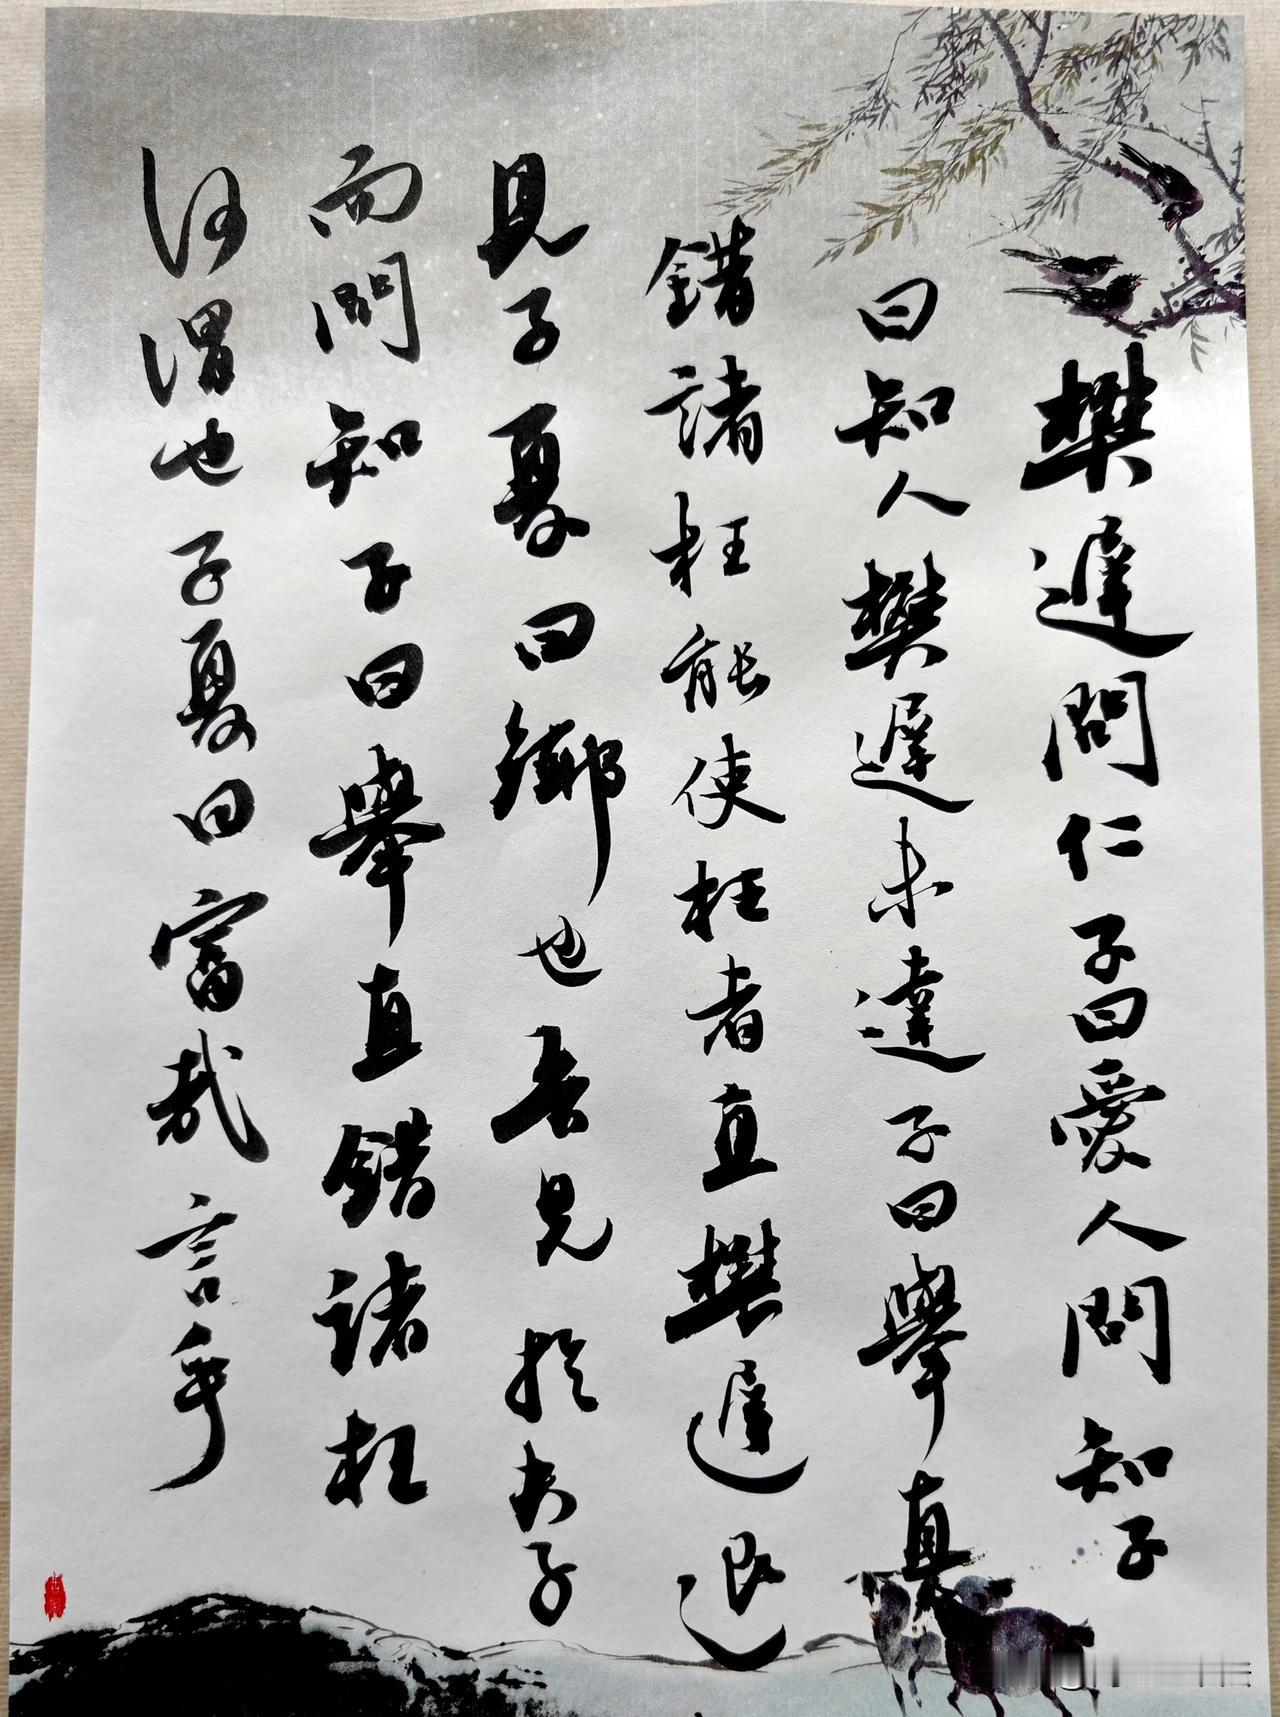 樊遲問仁子曰愛人問知子
曰知人樊遲未達子曰舉直
錯諸枉能使枉者直樊遲退
見子夏曰鄉也吾見於夫子
而問知子曰舉直錯諸枉
何謂也子夏曰富哉言乎